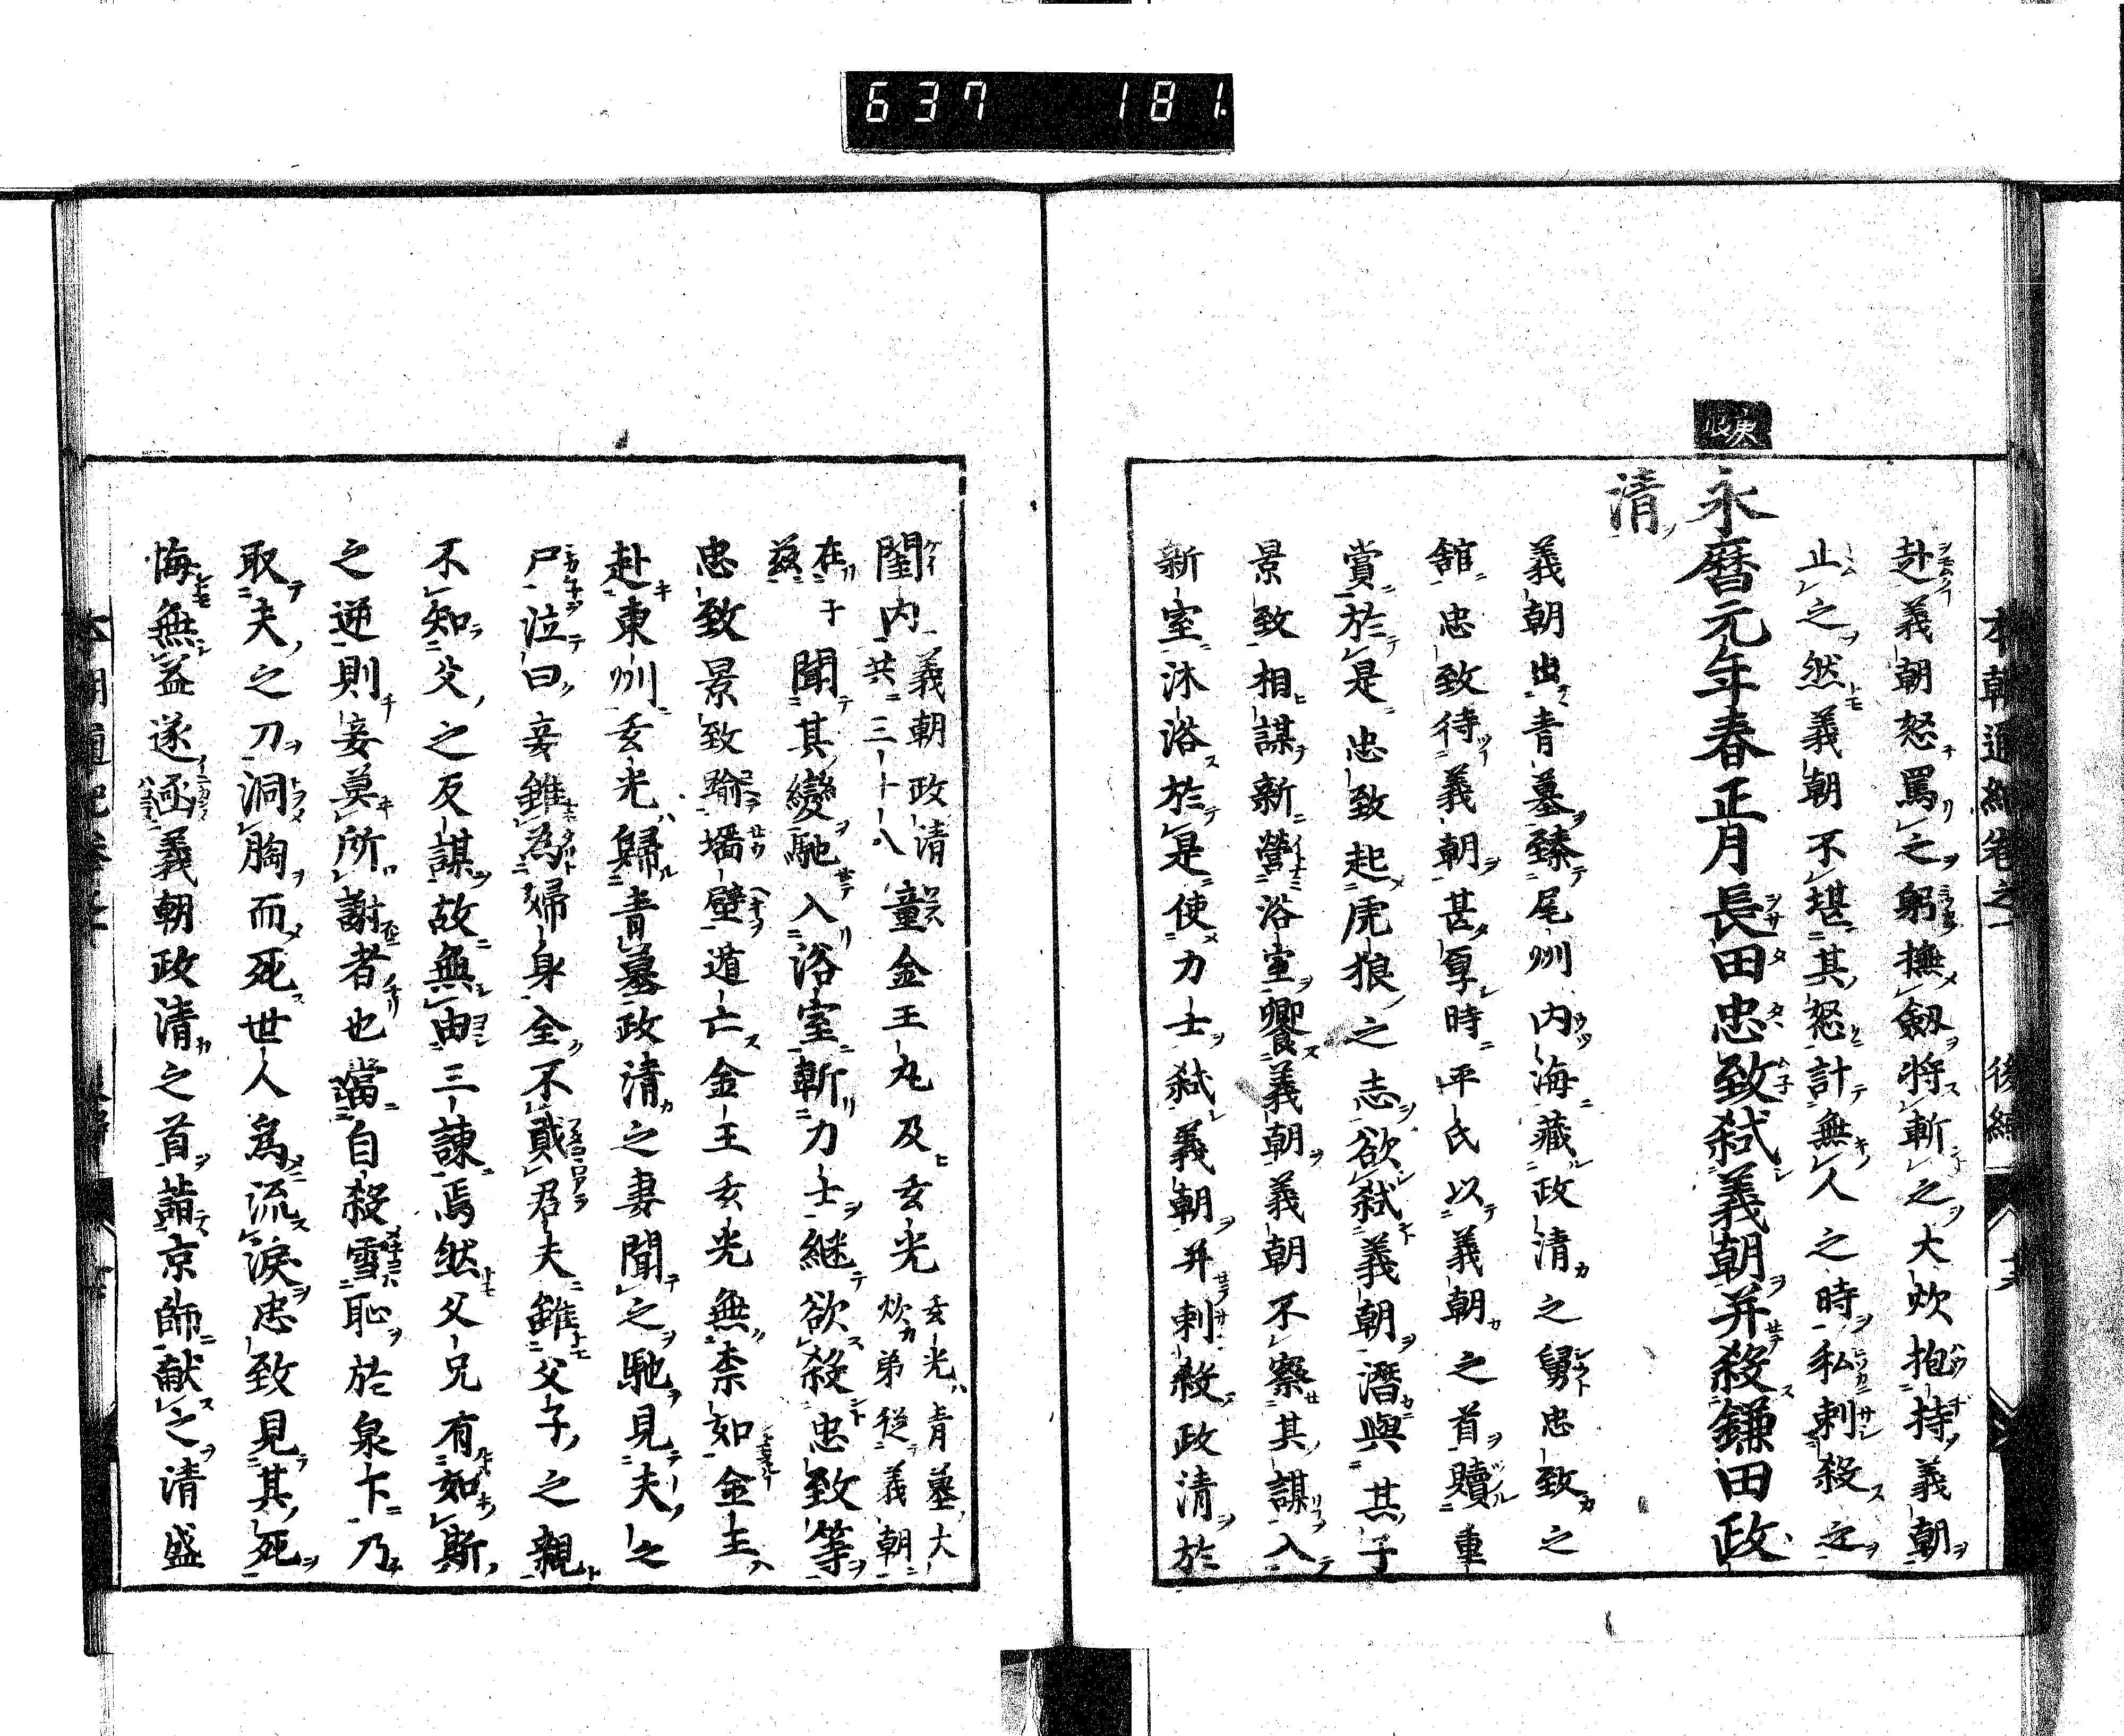 637 181
本朝通紀卷之一 後編
赴義朝怒罵之躬撫劔將斬之大炊抱持義朝
止之然義朝不堪其怒計無人之時私刺殺之
庚
永曆元年春正月長田忠致弑義朝并殺鎌田政
清
義朝出青墓臻尾州内海藏政清之舅忠致之
舘忠致待義朝甚厚時平氏以義朝之首贖重
賞於是忠致起虎狼之志欲弑義朝潛與其子
景致相謀新營浴室饗義朝義朝不察其謀入
新室沐浴於是使力士弑義朝并刺殺政清於
閨内義朝政清共三十八童金王丸及玄光玄光青墓大炊弟從義朝
在于茲聞其變馳入浴室斬力士継欲殺忠致等
忠致景致踰墻壁遁亡金王玄光無柰如金王
赴東州玄光歸青墓政清之妻聞之馳見夫之
尸泣曰妾雖為婦身全不貳君夫雖父子之親
不知父之反謀故無由三諫焉然父兄有如斯
之逆則妾莫所謝者也當自殺雪恥於泉下乃
取夫之刀洞胸而死世人為流淚忠致見其死
悔無益遂函義朝政清之首詣京師献之清盛